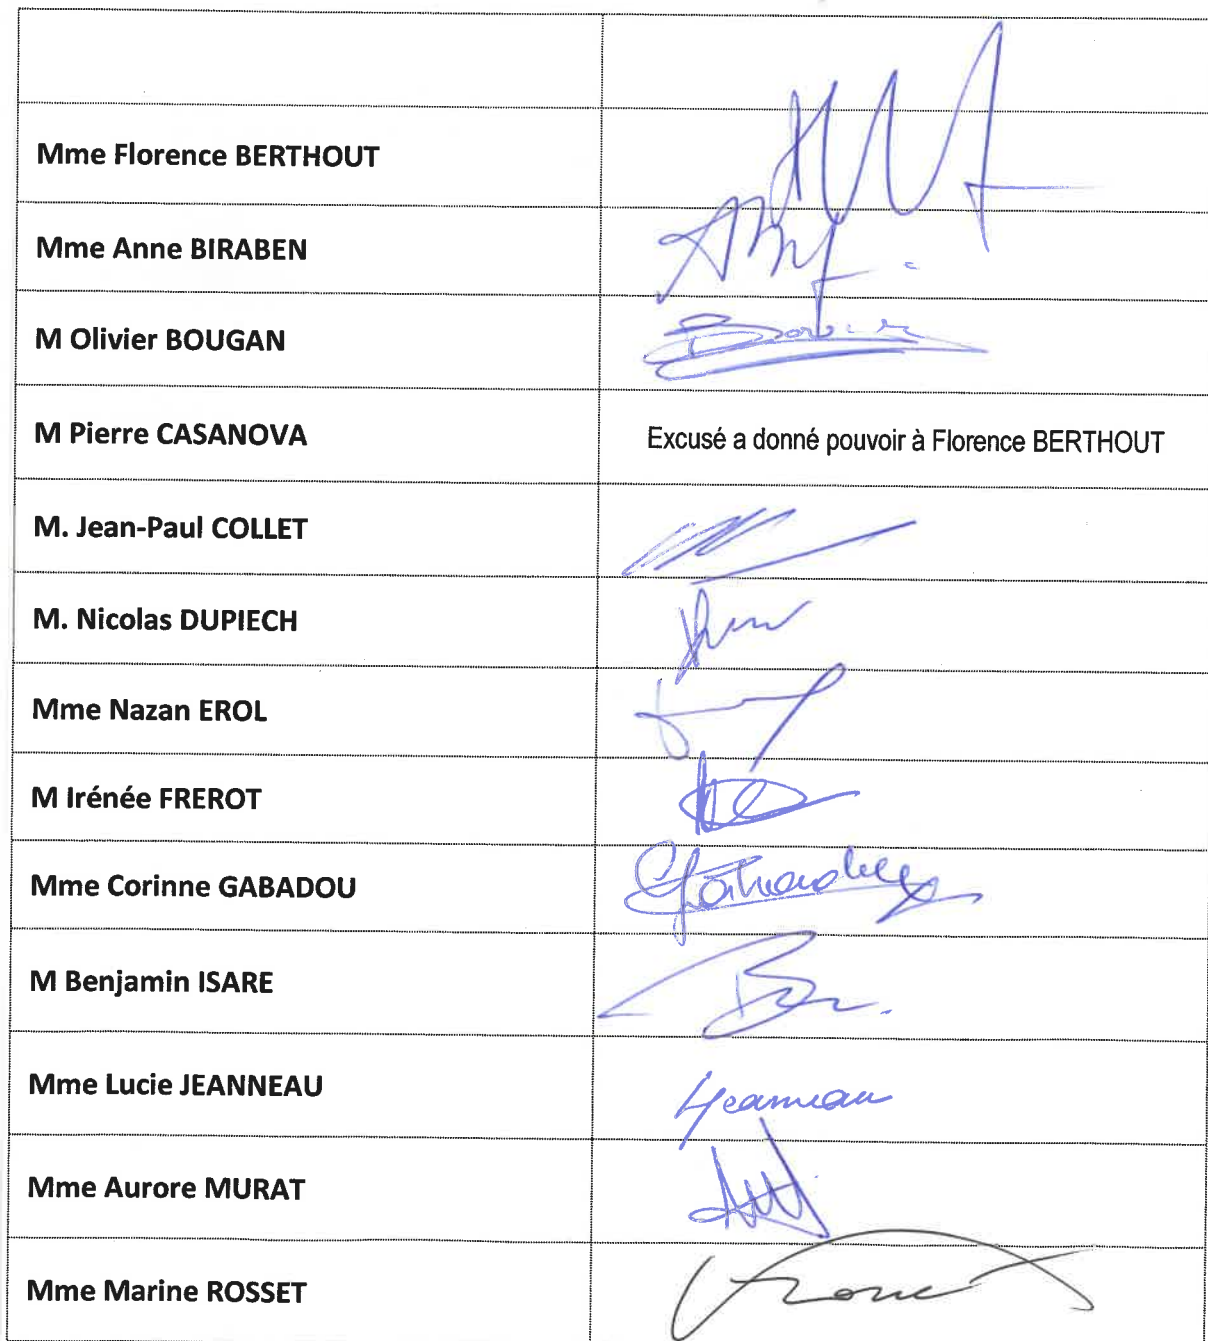 Mme Florence BERTHOUT
Mme Anne BIRABEN
M Olivier BOUGAN
M Pierre CASANOVA Excusé a donné pouvoir à Florence BERTHOUT
M. Jean-Paul COLLET
M. Nicolas DUPIECH
Mme Nazan EROL
M Irénée FREROT
Mme Corinne GABADOU
M Benjamin ISARE
Mme Lucie JEANNEAU
Mme Aurore MURAT
Mme Marine ROSSET